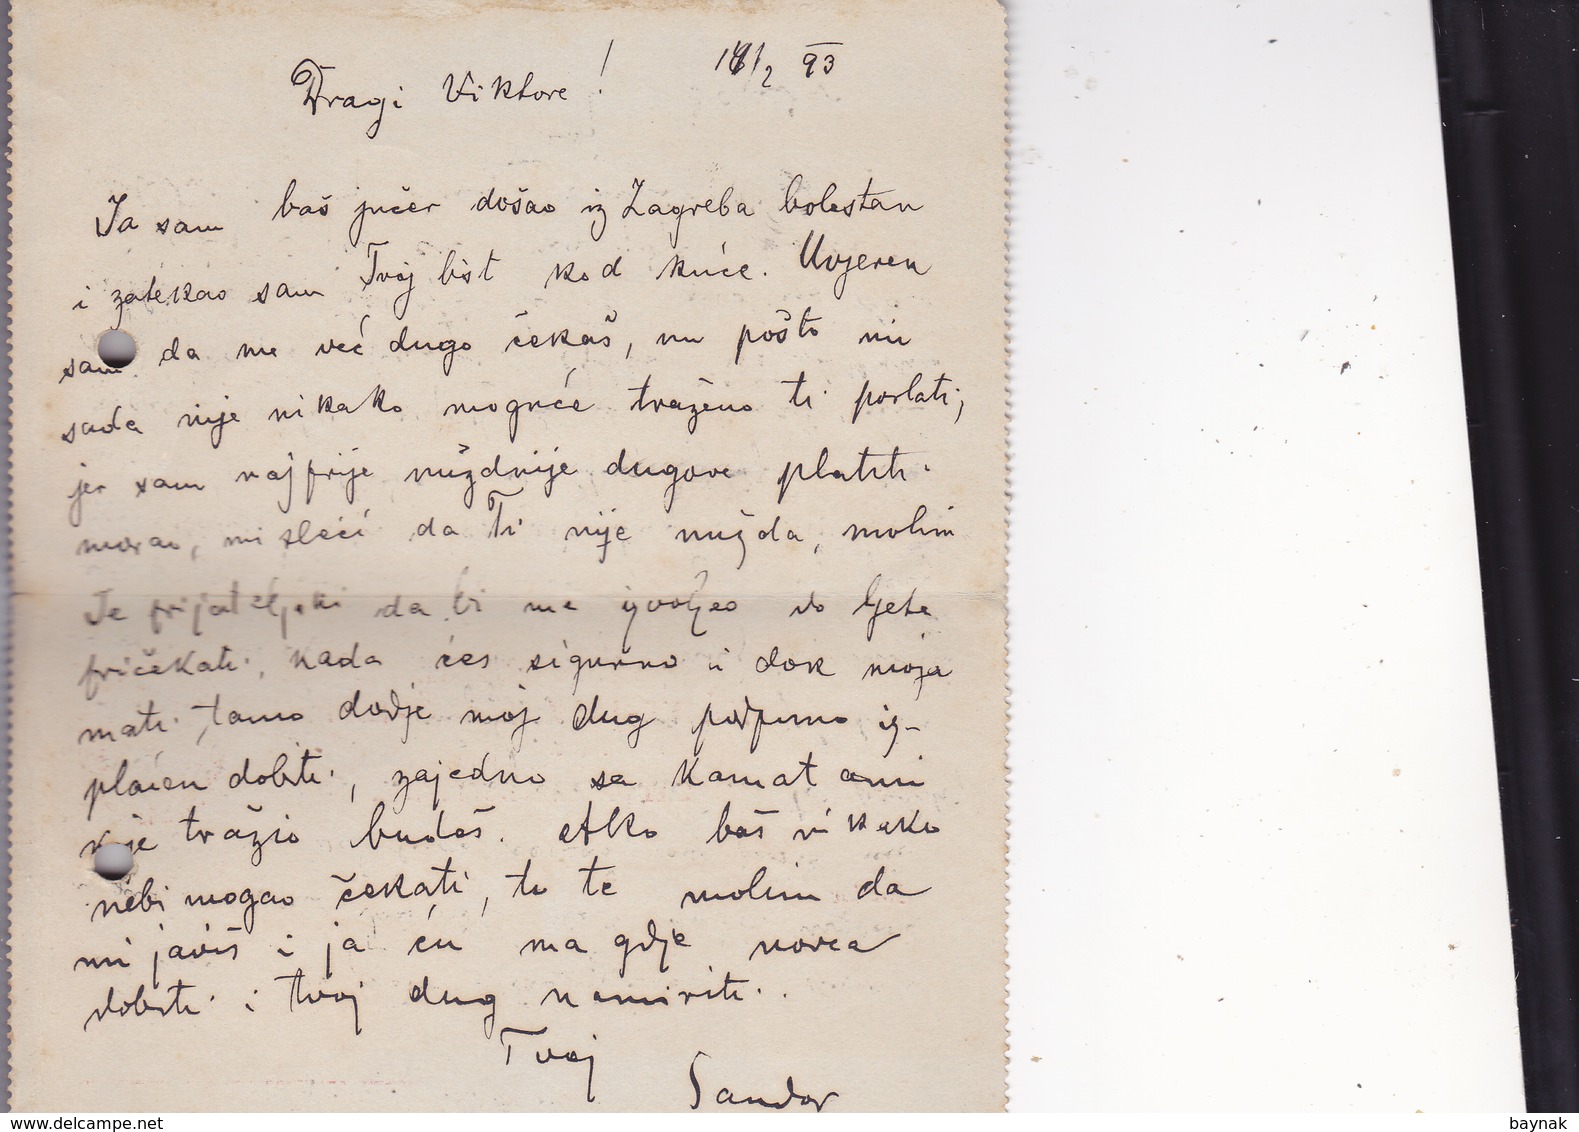 Dragi Viktore! 18/2 93
Ja sam baš jučer došao iz Zagreba bolestan
i zatekao sam Tvoj list kod kuće. Uvjeren
sam da me već dugo čekaš, nu pošto mi
sada nije nikako moguće traženo ti poslati,
jer sam najprije nuždnije dugove platiti
morao, misleći da Ti nije nužda, molim
Te prijateljski da bi me izvoljeo do ljeta
pričekati, kada ćeš sigurno i dok moja
mati tamo dodje moj dug podpuno iz-
plaćen dobiti, zajedno sa kamatami
koje tražio budeš. Ako baš nikako
nebi mogao čekati, to te molim da
mi javiš i ja ću ma gdje novca
dobiti i tvoj dug namiriti.
Tvoj
Sandor
baynak